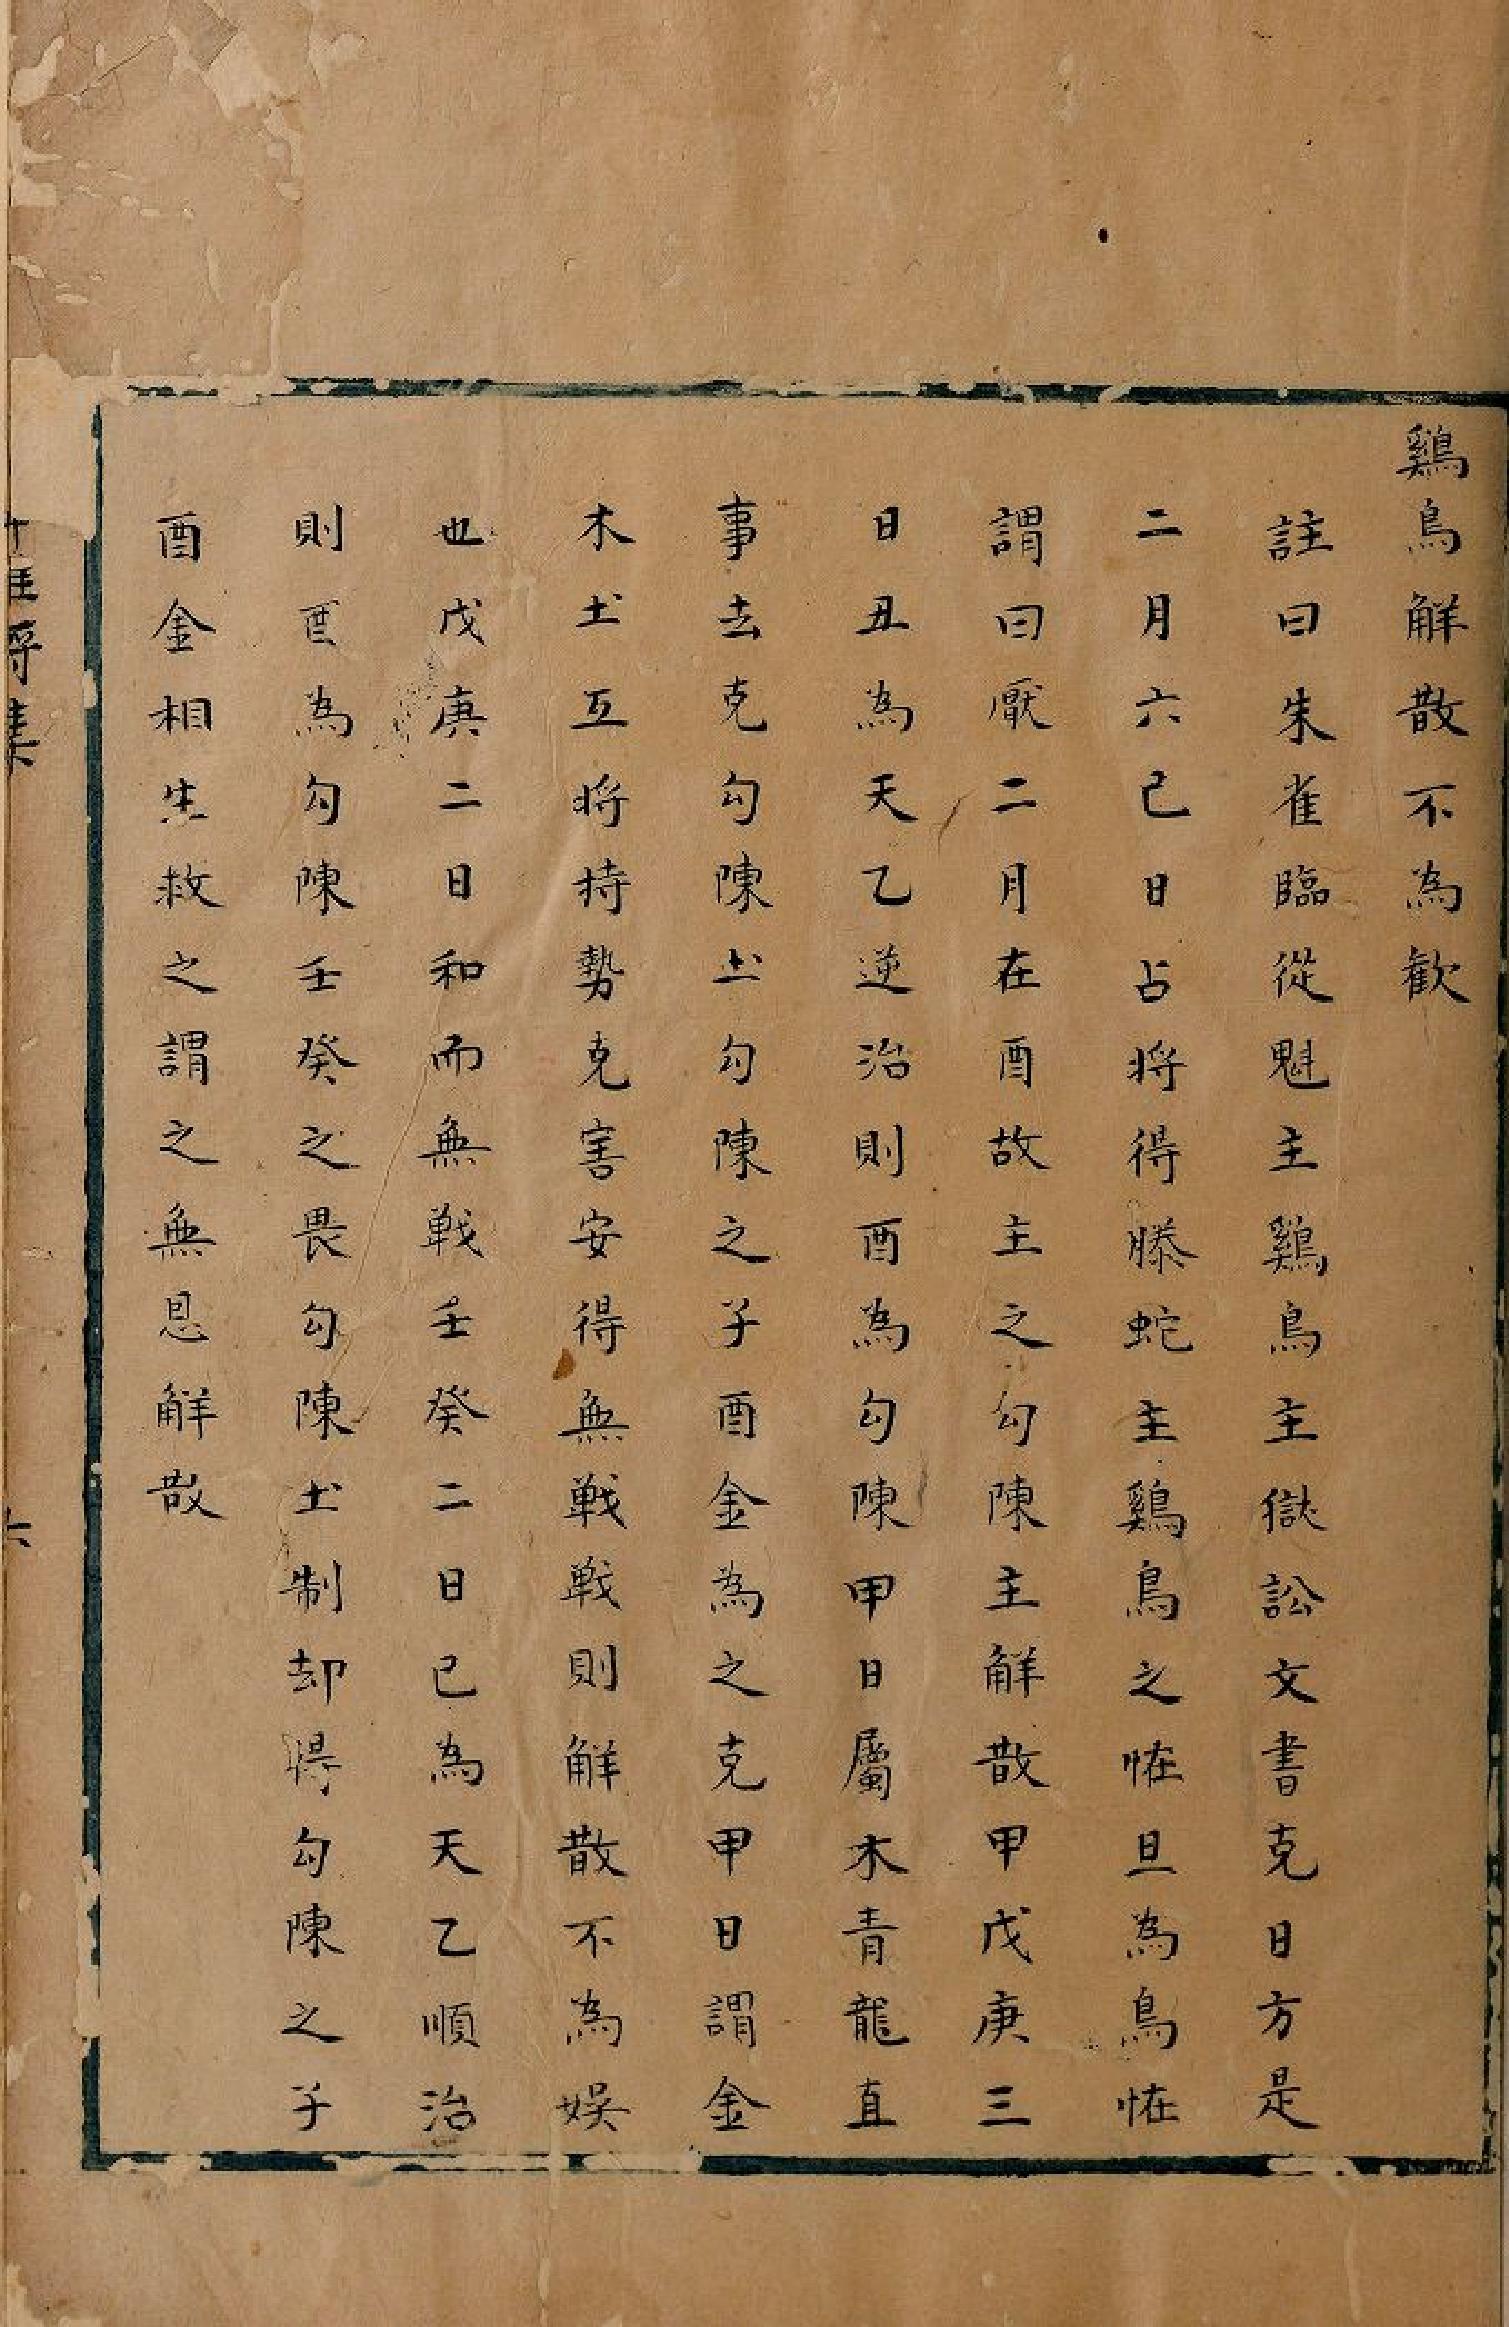 鷄鳥解散不為歡
註曰朱雀臨從魁主鷄鳥主獄訟文書克日方是
二月六己日占將得螣蛇主鷄鳥之恠旦為鳥恠
謂曰厭二月在酉故主之勾陳主解散甲戊庚三
日丑為天乙逆治則酉為勾陳甲日屬木青龍直
事去克勾陳土勾陳之子酉金為之克甲日謂金
木土互將持勢克害安得無戰戰則解散不為娛
也戊庚二日和而無戰壬癸二日巳為天乙順治
則酉為勾陳壬癸之畏勾陳土制却得勾陳之子
酉金相生救之謂之無恩解散
六